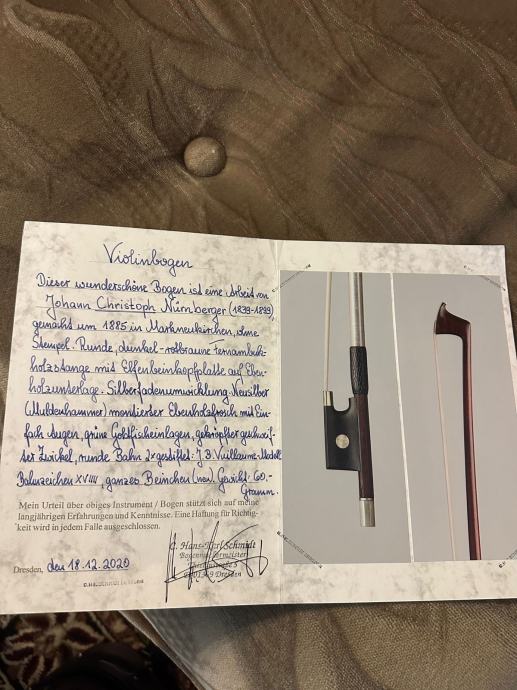 Violinbogen
Dieser wunderschöne Bogen ist eine Arbeit von
Johann Christoph Nürnberger (1839-1899),
gemacht um 1885 in Markneukirchen, ohne
Stempel. Runde, dunkel-rotbraune Fernambuk-
holzstange mit Elfenbeinkopfplatte auf Eben-
holzunterlage. Silberfadenumwicklung. Neusilber
(Muldenhammer) montierter Ebenholzfrosch mit Ein-
fach Augen, grüne Goldfischeinlagen, gekröpfter geschweif-
ter Zwickel, runde Bahn 2x gestiftet. J.B. Vuillaume-Modell
Bahnzeichen XVIIII, ganzes Beinchen (neu). Gewicht: 60,-
Gramm.
Mein Urteil über obiges Instrument / Bogen stützt sich auf meine
langjährigen Erfahrungen und Kenntnisse. Eine Haftung für Richtig-
keit wird in jedem Falle ausgeschlossen.
C. Hans-Karl Schmidt
Bogenmachermeister
Dresden
Dresden, den 18.12.2020